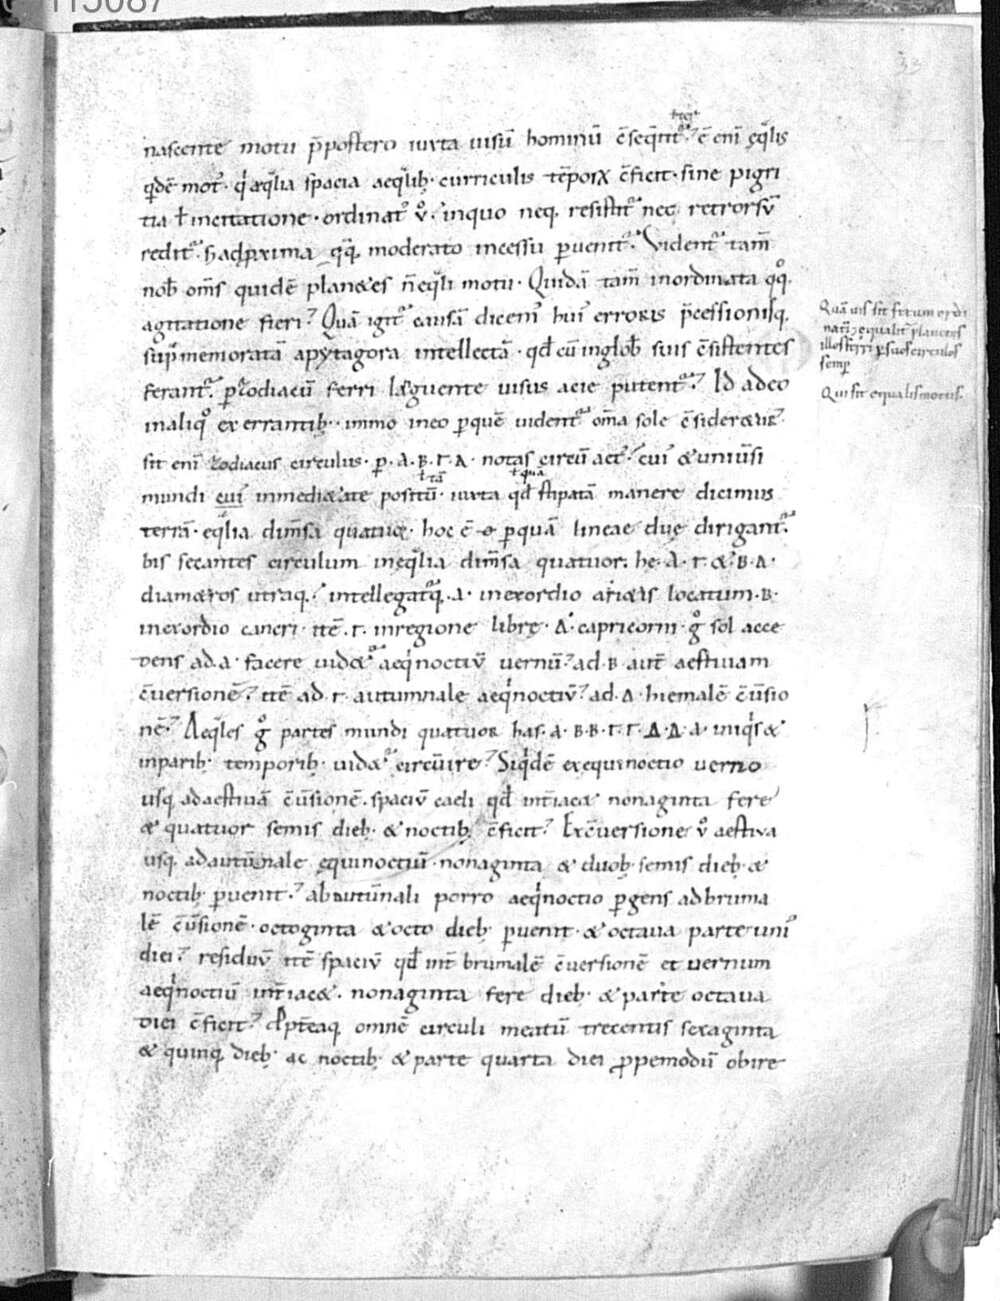 115087
33
nascente motu p̄postero iuxta uisū hominū c̄seq̄nt̃ ē enī ęq̄lis
q̇dē mot᷒· q́ æq̄lia spacia aeq̄lib; curriculis tēpoꝝ c̄ficit· sine pigri
tia ł incitatione· ordinat᷒ ṽ· inquo neq; resistit᷒ nec retrorsū
redit᷒· ꜧ adproxima q̄q; moderato incessu puenit᷒· Vident᷒ tam̄
nob̄ om̄s quidē plan&es n̄ eq̄li motu· Quidā tam̄ inordinata q°q;
agitatione fieri? Quā igit᷒ causā dicem᷒ hui᷒ erroris p̄cessionisq;
sup̃memoratā apytagora intellectā· qđ cū inglob̄ suis c̄sistentes
ferant᷒· p zodiacū ferri læguente uisus acie putent᷒? Id adeo
inaliq° ex errantib;· immo ineo pquē uident᷒ om̄a sole c̄sider&ur·
sit enī zodiacus circulus· p· A· B· Γ· Δ· notas circū act᷒· cui᷒ & uniūsi
mundi cui᷒ inmedi&ate positū· iuxta qđ stipatā manere dicimus
terrā· eq̄lia dim̄sa quatuor· hoc ē & pquā lineae duę dirigant᷒
bis secantes circulum ineq̄lia dim̄sa quatuor· he· A· Γ· & B· Δ·
diam&ros utraq;· intellegat᷒q; ·A· inexordio ari&is locatum· B·
inexordio cancri· itē· Γ· inregione librę· Δ· capricorni· g̊ sol acce
dens ad· A· facere uid&᷒ aeq́noctiū uernū· ad· B· aut̄ aestiuam
c̄uersionē· itē ad· Γ· autumnale aeq́noctiū· ad· Δ· hiemalē c̄ūsio
nē· Aeq̄les g̊ partes mundi quatuor has· A· B· B· Γ· Γ· Δ· Δ· A· iniq́s &
inparib; temporib; uid&᷒ circūire? Siq́dē exequinoctio uerno
usq; adaestiuā c̄ūsionē· spaciū caeli qđ int̄iac& nonaginta fere
& quatuor semis dieb; & noctib; c̄ficit? Exc̄uersione ṽ aestiua
usq; adautūnale ęquinoctiū· nonaginta & duob; semis dieb; &
noctib; puenit· abautūnali porro aeq́noctio pgens adbruma
lē c̄ūsionē· octoginta & octo dieb; puenit· & octaua parte uni᷒
diei· residuū itē spaciū qđ int̄ brumalē c̄uersionē et uernum
aeq́noctiū int̄iac&· nonaginta fere dieb; & parte octaua
diei c̄ficit· &pt̄eaq; omnē circuli meatū trecentis sexaginta
& quinq; dieb; ac noctib; & parte quarta diei ppemodū obire
Quā uis sit
planetes
semp
Qui sit equalis motus·